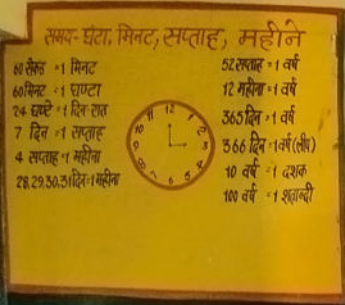 समय- घंटा, मिनट, सप्ताह, महीने
60 सैकंड = 1 मिनट
60 मिनट = 1 घण्टा
24 घण्टे = 1 दिन-रात
7 दिन = 1 सप्ताह
4 सप्ताह = 1 महीना
28,29,30,31 दिन = 1 महीना
12
1
2
3
4
5
6
7
8
9
10
11
52 सप्ताह = 1 वर्ष
12 महीना = 1 वर्ष
365 दिन = 1 वर्ष
366 दिन = 1 वर्ष (लीप)
10 वर्ष = 1 दशक
100 वर्ष = 1 शताब्दी